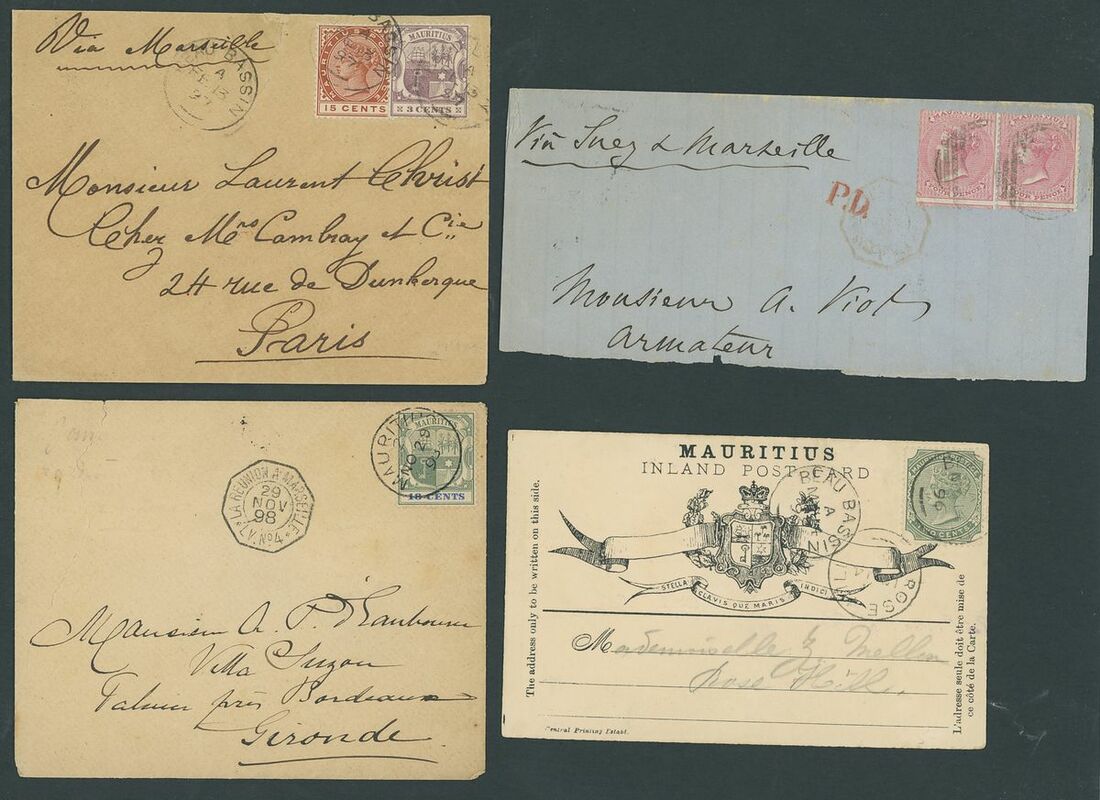 Via Marseille
BEAU BASSIN
A
MAURITIUS
15 CENTS
MAURITIUS
3 CENTS
Monsieur Laurent Christ
Chez Mrs Cambray et Cie
24 rue de Dunkerque
Paris
Via Suez & Marseille
MAURITIUS
FOUR PENCE
MAURITIUS
FOUR PENCE
P.D.
Monsieur A. Viot
armateur
MAURITIUS
MAURITIUS
18 CENTS
LA RÉUNION A MARSEILLE
29
NOV
98
L.V. No 4
Monsieur A. P.
Villa Suzon
près Bordeaux
Gironde
MAURITIUS
INLAND POST CARD
BEAU BASSIN
A
96
TWO CENTS
ROSE HILL
STELLA CLAVIS QUE MARIS INDICI
The address only to be written on this side.
L'adresse seule doit être mise de
ce côté de la Carte.
Mademoiselle
Rose Hill
Central Printing Establ.